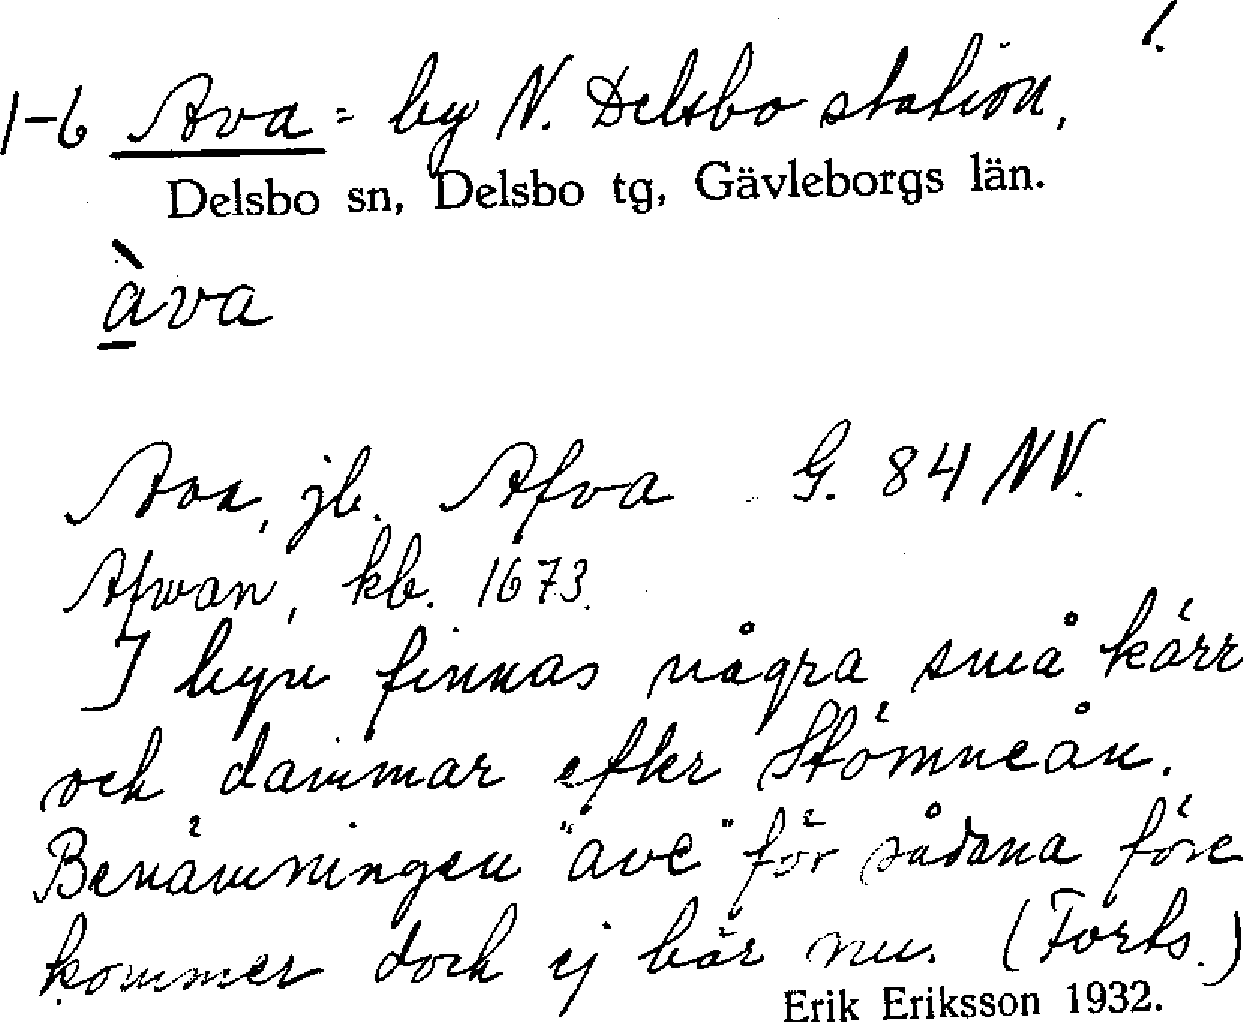 1.
1-6 Ava = by N. Delsbo station,
Delsbo sn, Delsbo tg, Gävleborgs län.
àva
Ava, jb. Afva G. 84 NV.
Afwan, kb. 1673.
I byn finnas några små kärr
och dammar efter Stömneån.
Benämningen "ave" för sådana före
kommer dock ej här nu. (Forts.)
Erik Eriksson 1932.